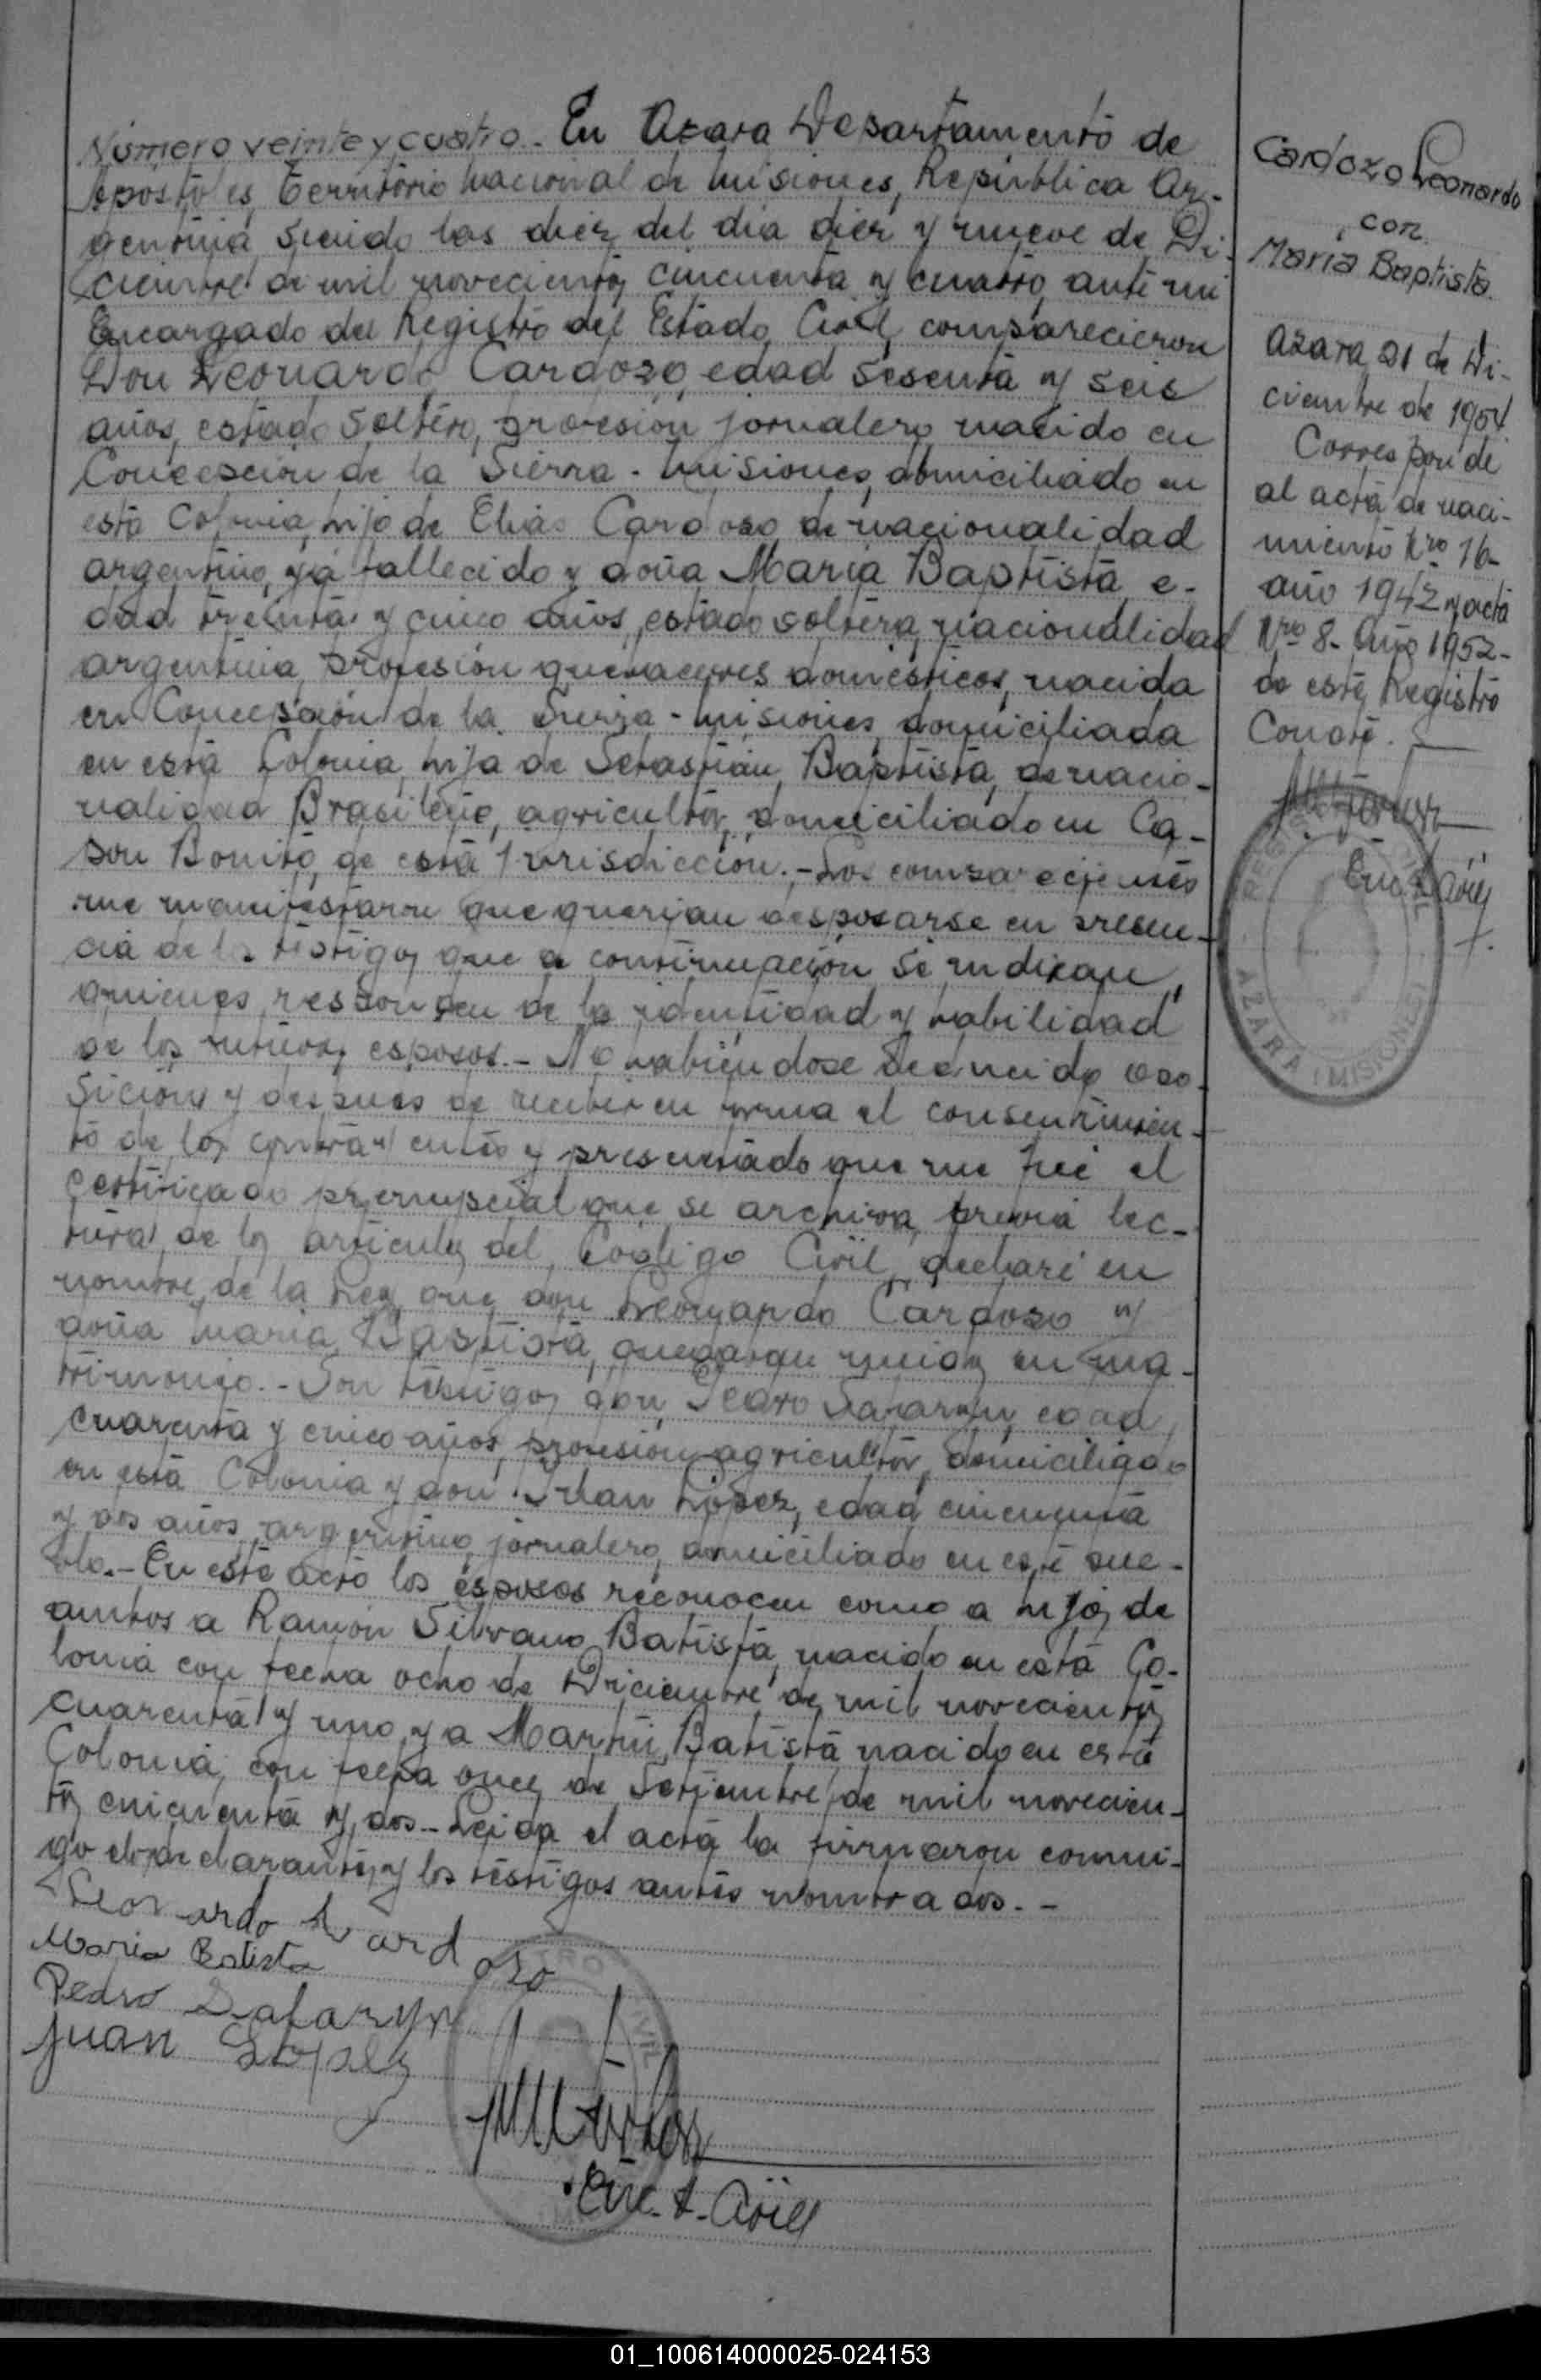 Número veinte y cuatro.- En Azara Departamento de
Apóstoles, Territorio Nacional de Misiones, República Ar-
gentina, siendo las diez del día diez y nueve de Di-
ciembre de mil novecientos cincuenta y cuatro, ante mi
Encargado del Registro del Estado Civil, comparecieron
Don Leonardo Cardozo, edad sesenta y seis
años, estado soltero, profesión jornalero, nacido en
Concepción de la Sierra - Misiones, domiciliado en
esta Colonia, hijo de Elias Cardozo, de nacionalidad
argentino, ya fallecido y doña María Baptista, e-
dad treinta y cinco años, estado soltera, nacionalidad
argentina, profesión quehaceres domésticos, nacida
en Concepción de la Sierra - Misiones, domiciliada
en esta Colonia, hija de Sebastián Baptista, de nacio-
nalidad Brasileño, agricultor, domiciliado en Ca-
pon Bonito, de esta Jurisdicción.- Los comparecientes
me manifestaron que querian desposarse en presen-
cia de los testigos que a continuación se indican,
quienes responden de la identidad y habilidad
de los futuros esposos.- No habiéndose deducido opo-
sición y después de recibir en forma el consentimien-
to de los contrayentes y presentado que me fué el
certificado prenupcial que se archiva, previa lec-
tura de los articulos del Codigo Civil, declaré en
nombre de la Ley que don Leonardo Cardozo y
doña Maria Baptista, quedaban unidos en ma-
trimonio.- Son testigos don Pedro Safaryn, edad
cuarenta y cinco años, profesión agricultor, domiciliado
en esta Colonia y don Juan López, edad cincuenta
y dos años, argentino, jornalero, domiciliado en este pue-
blo.- En este acto los esposos reconocen como a hijos de
ambos a Ramón Silvano Batista, nacido en esta Co-
lonia con fecha ocho de Diciembre de mil novecientos
cuarenta y uno, y a Martín Batista nacido en esta
Colonia, con fecha once de Setiembre de mil novecien-
tos cincuenta y dos.- Leida el acta la firmaron conmi-
go los declarantes y los testigos antes nombrados.-
Leonardo Cardozo
Maria Batista
Pedro Safaryn
Juan
Enc. R. Civil
Cardozo Leonardo
con
María Baptista.
Azara, 21 de Di-
ciembre de 1954
Corresponde
al acta de naci-
miento Nro 16-
año 1942 y acta
Nro 8- Año 1952-
de este Registro
Conste.
Enc. R. Civil
REGISTRO CIVIL
AZARA (MISIONES)
01_100614000025-024153